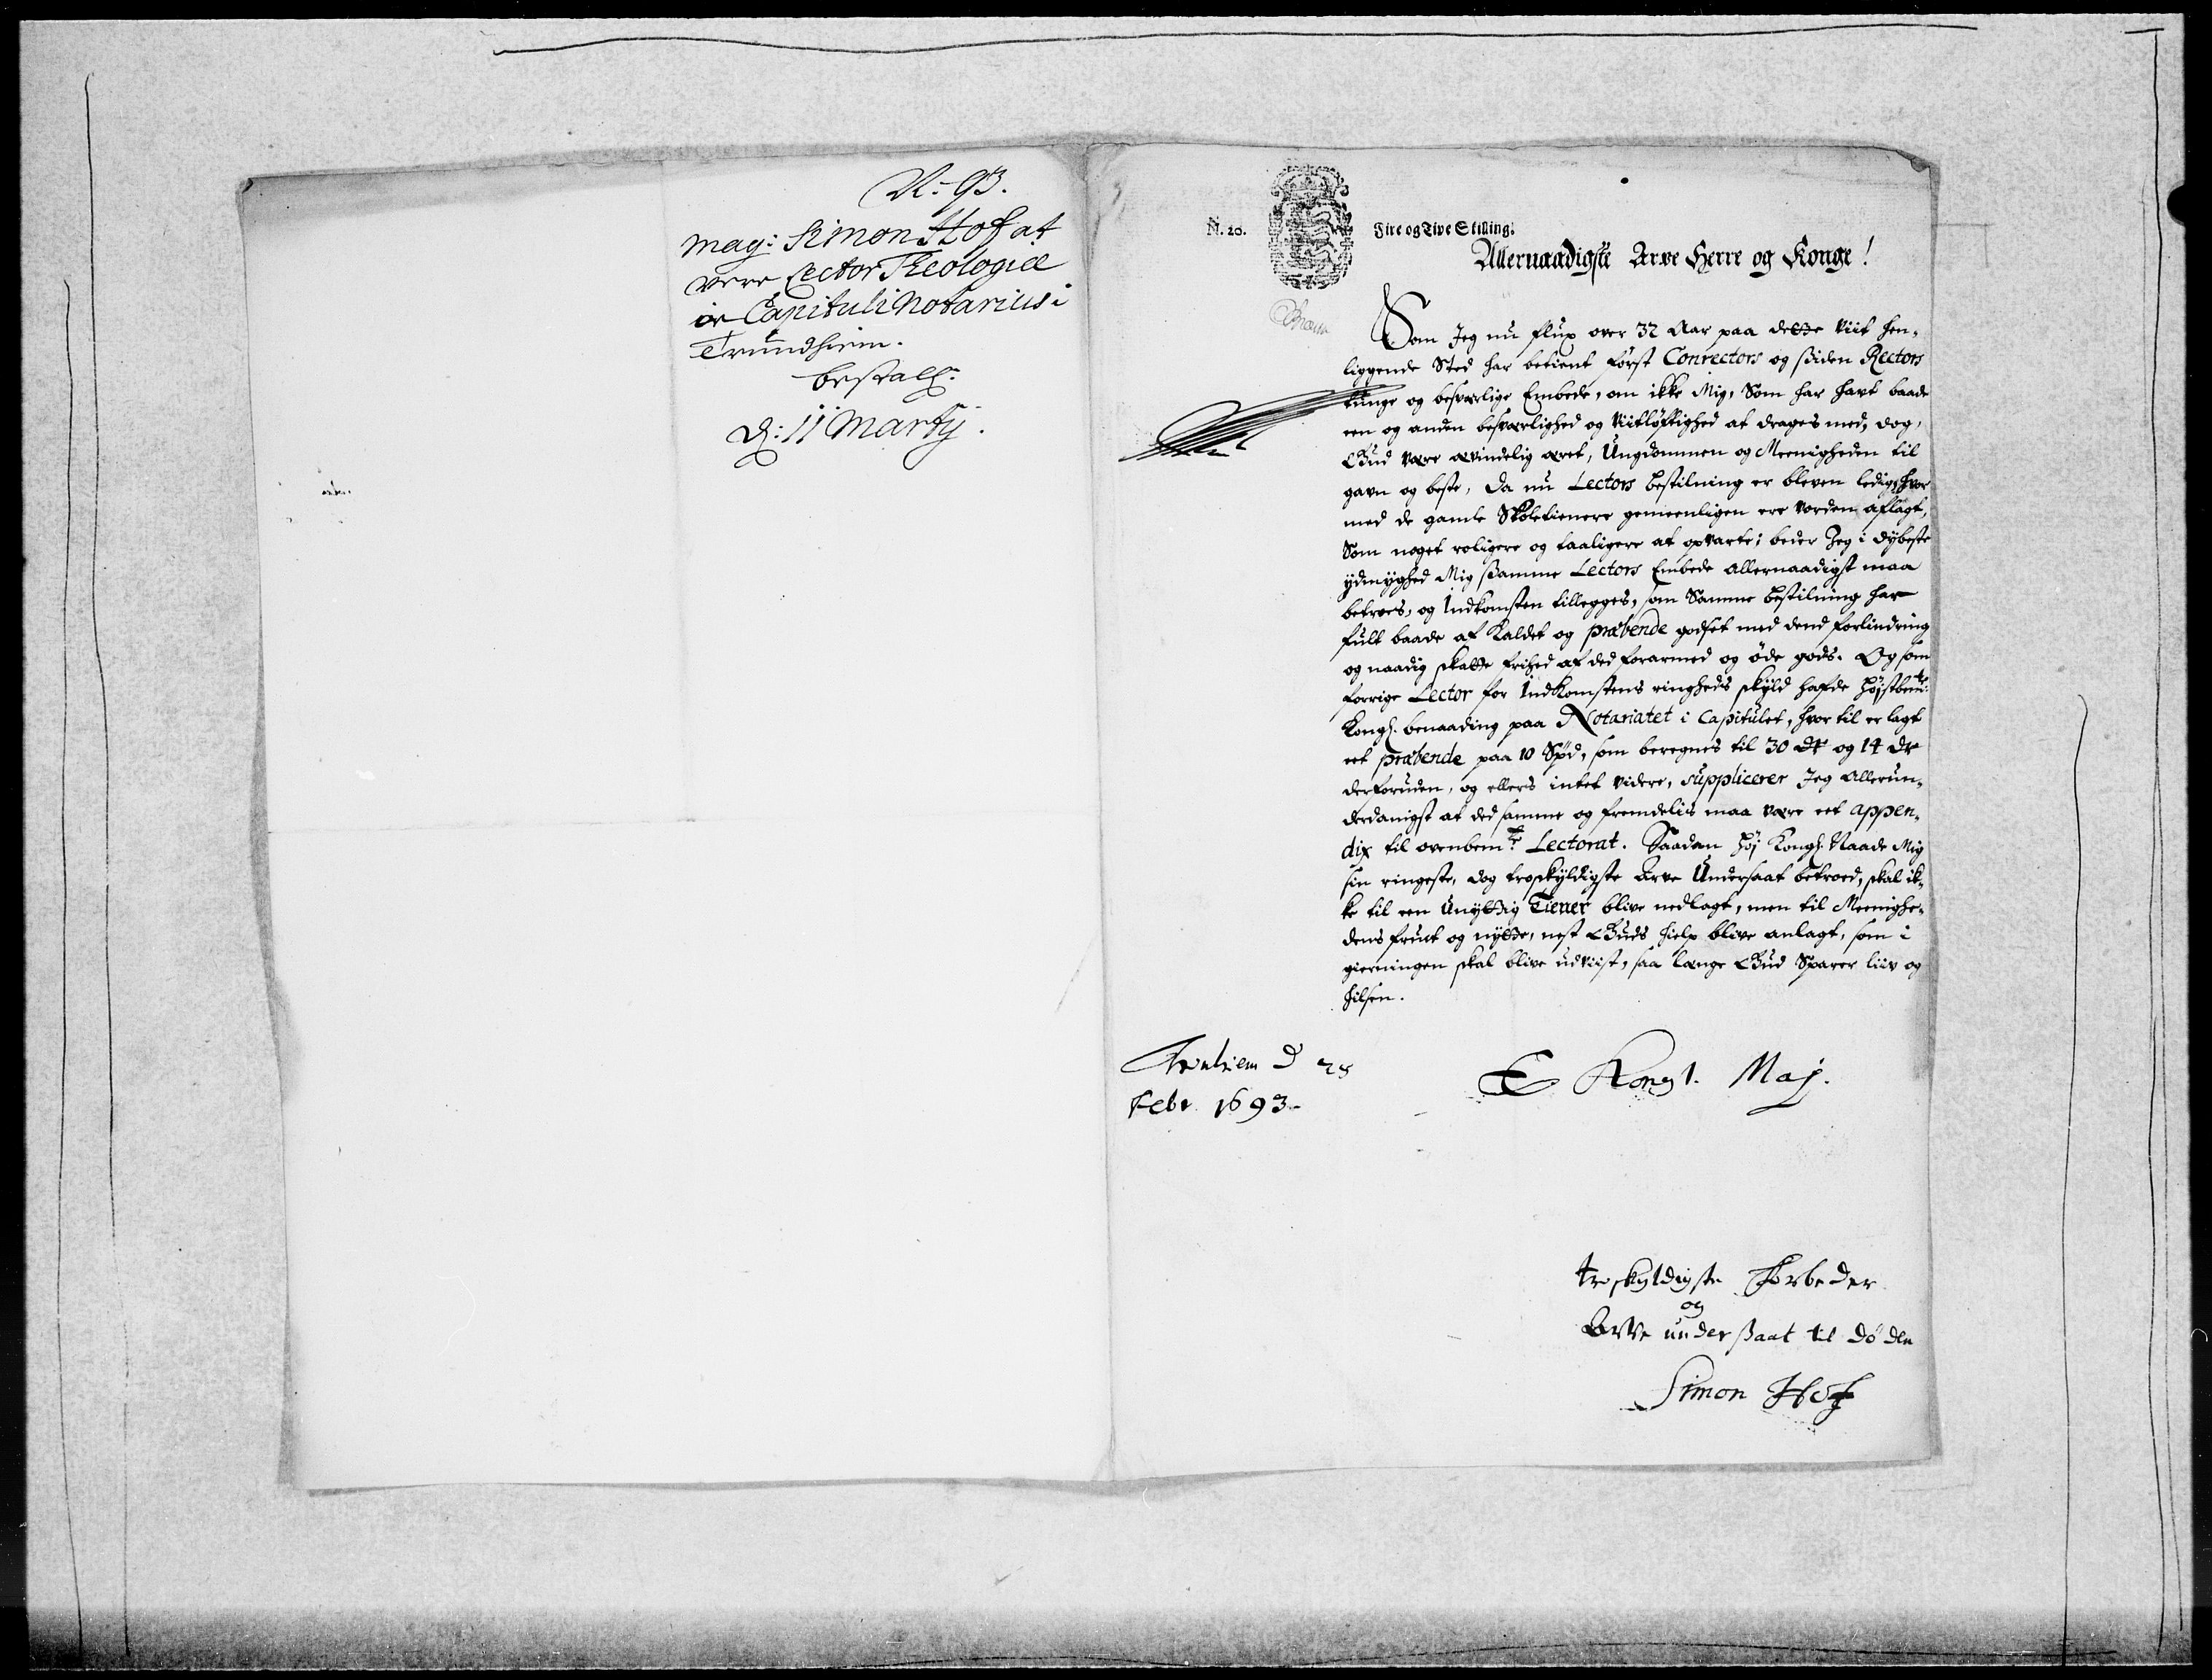 N: 93.
Mag: Simon Hof at
vere Lector Theologiæ
oc Capituli Notarius i
Trundhiem.
bestall:
d: 11 Martij.
N. 20.
Fire og Tive Skilling.
Allernaadigste Arve Herre og Konge!
Som Jeg nu flux over 32 Aar paa dette viit hen-
liggende Sted har betient først Conrectors og siden Rectors
tunge og besværlige Embede, om ikke Mig, Som har havt baade
een og anden besværlighed og viitløftighed at drages med, dog,
Gud være ævindelig æret, Ungdommen og Meenigheden til
gavn og beste, da nu Lectors bestilning er bleven ledig, hvor
med de gamle Skoletienere gemeenligen ere vorden aflagt,
Som noget roligere og taaligere at opvarte; beder Jeg i dybeste
ydmyghed Mig samme Lectors Embede allernaadigst maa
betroes, og Indkomsten tillegges, som Samme bestilning har
fult baade af Kaldet og præbende godset med dend forlindring
og naadig skatte frihed af ded forarmed og øde gods. Og som
forrige Lector for Indkomstens ringheds skyld hafde høystbemte
Kongl. benaading paa Notariatet i Capitulet, hvor til er lagt
eet præbende paa 10 Spd, som beregnes til 30 dr og 14 dr
derforuden, og ellers intet videre, supplicerer Jeg Allerun-
derdanigst at ded samme og fremdelis maa være eet appen-
dix til ovenbemte Lectorat. Saadan høj Kongl. Naade Mig
sin ringeste, dog troskyldigste Arve Undersaat betroed, skal ik-
ke til een unyttig Tiener blive nedlagt, men til Meenighe-
dens fruct og nytte, nest Guds hielp blive anlagt, som i
gierningen skal blive udviist, saa længe Gud Sparer liiv og
hilsen.
Trvnhiem D 28
Febr. 1693.
E Kongl. Maj.
troskyldigste Forbeder
og
Arve undersaat til døden
Simon Hof